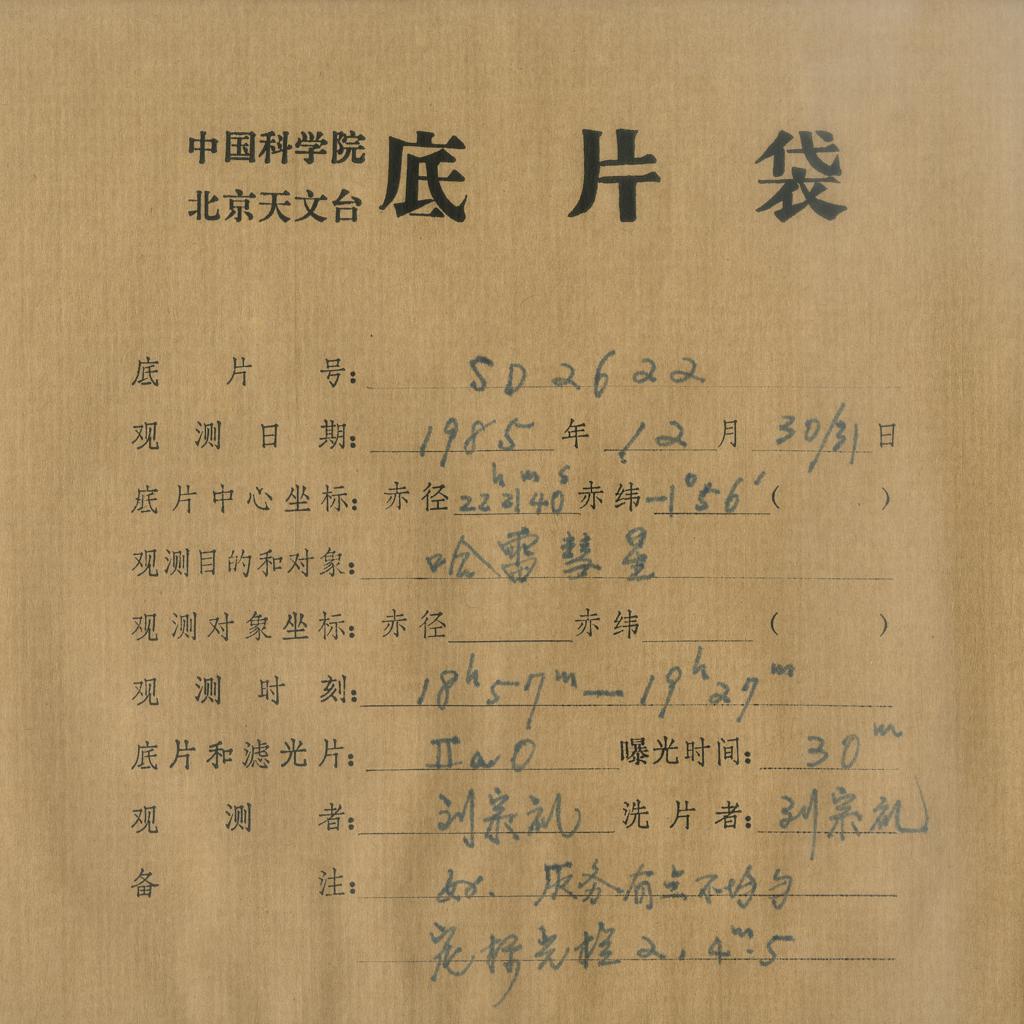 中国科学院
北京天文台
底片袋
底片号：SD2622
观测日期：1985年12月30/31日
底片中心坐标：赤径22h21m40s赤纬-1°56′（ ）
观测目的和对象：哈雷彗星
观测对象坐标：赤径 赤纬 （ ）
观测时刻：18h57m—19h27m
底片和滤光片：IIaO 曝光时间：30m
观测者：刘宗礼 洗片者：刘宗礼
备注：好. 底务有点不均匀
定标光楔 2, 4m.5